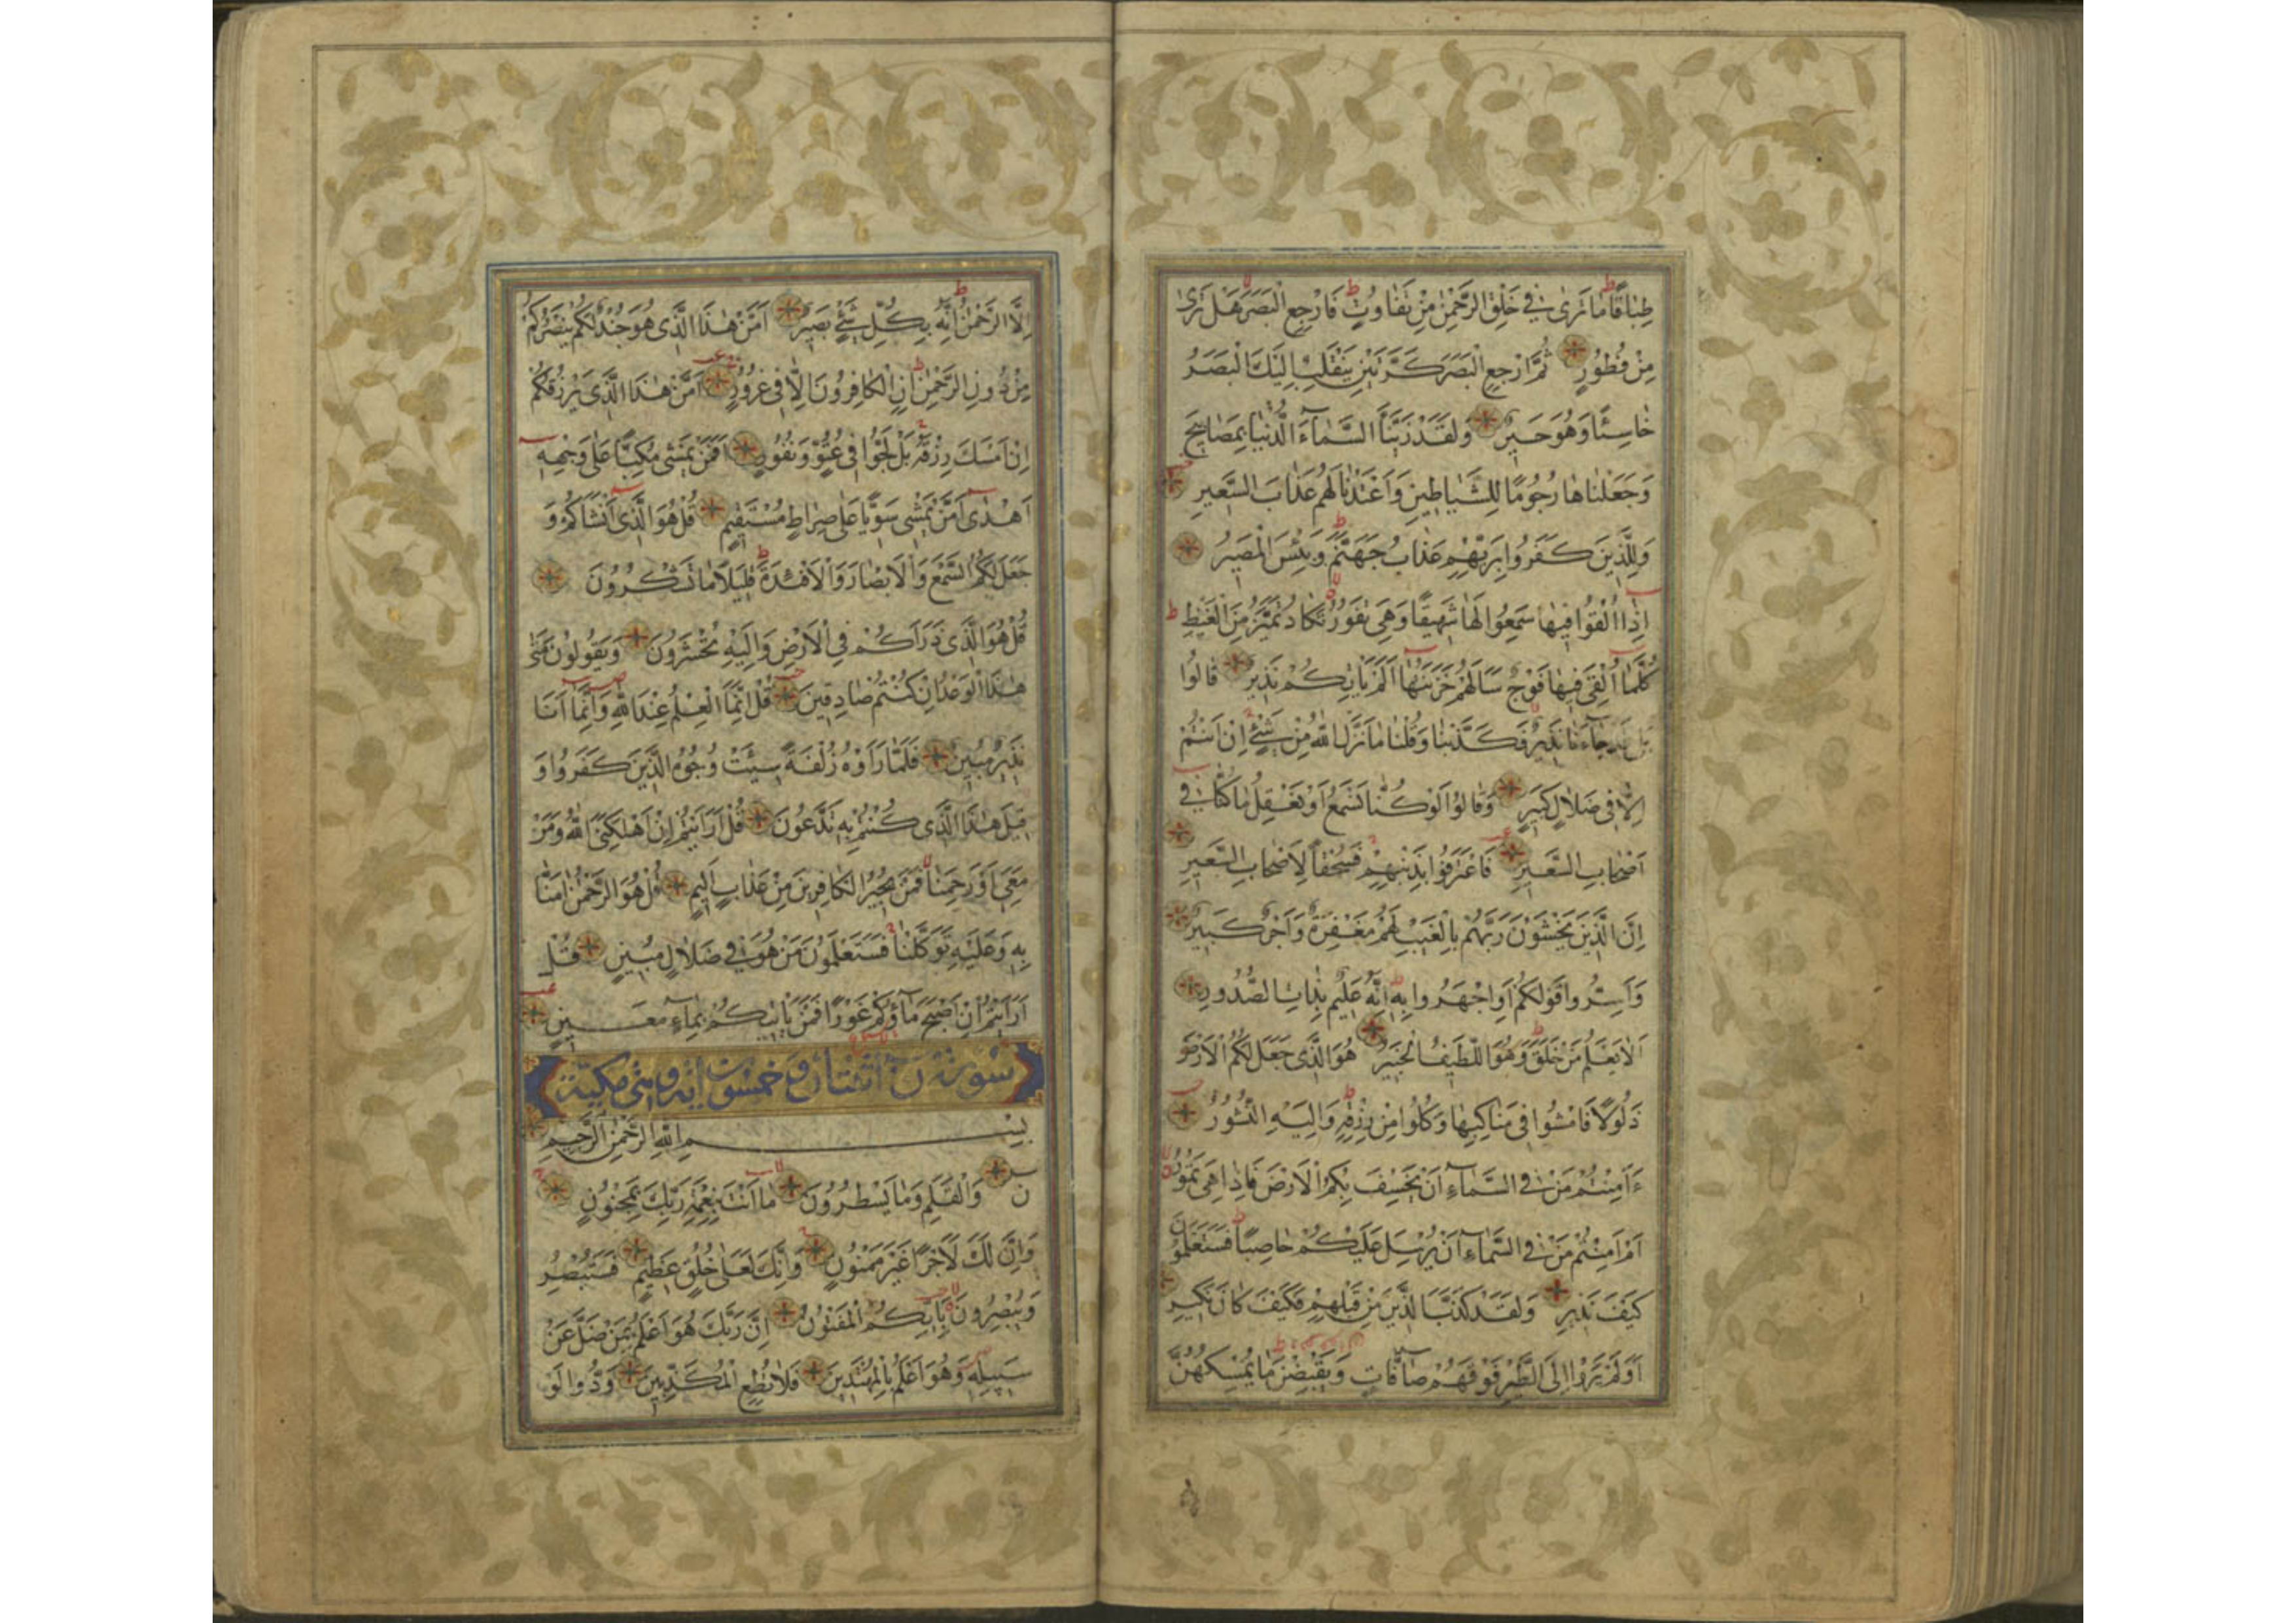 طِبَاقًا مَا تَرٰى فِي خَلْقِ الرَّحْمٰنِ مِنْ تَفَاوُتٍ فَارْجِعِ الْبَصَرَ هَلْ تَرٰى
مِنْ فُطُورٍ ثُمَّ ارْجِعِ الْبَصَرَ كَرَّتَيْنِ يَنْقَلِبْ اِلَيْكَ الْبَصَرُ
خَاسِئًا وَهُوَ حَسِيرٌ وَلَقَدْ زَيَّنَّا السَّمَآءَ الدُّنْيَا بِمَصَابِيحَ
وَجَعَلْنَاهَا رُجُومًا لِلشَّيَاطِينِ وَاَعْتَدْنَا لَهُمْ عَذَابَ السَّعِيرِ
وَلِلَّذِينَ كَفَرُوا بِرَبِّهِمْ عَذَابُ جَهَنَّمَ وَبِئْسَ الْمَصِيرُ
اِذَا اُلْقُوا فِيهَا سَمِعُوا لَهَا شَهِيقًا وَهِيَ تَفُورُ تَكَادُ تَمَيَّزُ مِنَ الْغَيْظِ
كُلَّمَا اُلْقِيَ فِيهَا فَوْجٌ سَاَلَهُمْ خَزَنَتُهَا اَلَمْ يَاْتِكُمْ نَذِيرٌ قَالُوا
بَلٰى قَدْ جَآءَنَا نَذِيرٌ فَكَذَّبْنَا وَقُلْنَا مَا نَزَّلَ اللّٰهُ مِنْ شَيْءٍ اِنْ اَنْتُمْ
اِلَّا فِي ضَلَالٍ كَبِيرٍ وَقَالُوا لَوْ كُنَّا نَسْمَعُ اَوْ نَعْقِلُ مَا كُنَّا فِي
اَصْحَابِ السَّعِيرِ فَاعْتَرَفُوا بِذَنْبِهِمْ فَسُحْقًا لِاَصْحَابِ السَّعِيرِ
اِنَّ الَّذِينَ يَخْشَوْنَ رَبَّهُمْ بِالْغَيْبِ لَهُمْ مَغْفِرَةٌ وَاَجْرٌ كَبِيرٌ
وَاَسِرُّوا قَوْلَكُمْ اَوِ اجْهَرُوا بِهِ اِنَّهُ عَلِيمٌ بِذَاتِ الصُّدُورِ
اَلَا يَعْلَمُ مَنْ خَلَقَ وَهُوَ اللَّطِيفُ الْخَبِيرُ هُوَ الَّذِي جَعَلَ لَكُمُ الْاَرْضَ
ذَلُولًا فَامْشُوا فِي مَنَاكِبِهَا وَكُلُوا مِنْ رِزْقِهِ وَاِلَيْهِ النُّشُورُ
ءَاَمِنْتُمْ مَنْ فِي السَّمَآءِ اَنْ يَخْسِفَ بِكُمُ الْاَرْضَ فَاِذَا هِيَ تَمُورُ
اَمْ اَمِنْتُمْ مَنْ فِي السَّمَآءِ اَنْ يُرْسِلَ عَلَيْكُمْ حَاصِبًا فَسَتَعْلَمُونَ
كَيْفَ نَذِيرِ وَلَقَدْ كَذَّبَ الَّذِينَ مِنْ قَبْلِهِمْ فَكَيْفَ كَانَ نَكِيرِ
اَوَلَمْ يَرَوْا اِلَى الطَّيْرِ فَوْقَهُمْ صَآفَّاتٍ وَيَقْبِضْنَ مَا يُمْسِكُهُنَّ
اِلَّا الرَّحْمٰنُ اِنَّهُ بِكُلِّ شَيْءٍ بَصِيرٌ اَمَّنْ هٰذَا الَّذِي هُوَ جُنْدٌ لَكُمْ يَنْصُرُكُمْ
مِنْ دُونِ الرَّحْمٰنِ اِنِ الْكَافِرُونَ اِلَّا فِي غُرُورٍ اَمَّنْ هٰذَا الَّذِي يَرْزُقُكُمْ
اِنْ اَمْسَكَ رِزْقَهُ بَلْ لَجُّوا فِي عُتُوٍّ وَنُفُورٍ اَفَمَنْ يَمْشِي مُكِبًّا عَلٰى وَجْهِهِ
اَهْدٰى اَمَّنْ يَمْشِي سَوِيًّا عَلٰى صِرَاطٍ مُسْتَقِيمٍ قُلْ هُوَ الَّذِي اَنْشَاَكُمْ وَ
جَعَلَ لَكُمُ السَّمْعَ وَالْاَبْصَارَ وَالْاَفْئِدَةَ قَلِيلًا مَا تَشْكُرُونَ
قُلْ هُوَ الَّذِي ذَرَاَكُمْ فِي الْاَرْضِ وَاِلَيْهِ تُحْشَرُونَ وَيَقُولُونَ مَتٰى
هٰذَا الْوَعْدُ اِنْ كُنْتُمْ صَادِقِينَ قُلْ اِنَّمَا الْعِلْمُ عِنْدَ اللّٰهِ وَاِنَّمَا اَنَا
نَذِيرٌ مُبِينٌ فَلَمَّا رَاَوْهُ زُلْفَةً سِيئَتْ وُجُوهُ الَّذِينَ كَفَرُوا وَ
قِيلَ هٰذَا الَّذِي كُنْتُمْ بِهِ تَدَّعُونَ قُلْ اَرَاَيْتُمْ اِنْ اَهْلَكَنِيَ اللّٰهُ وَمَنْ
مَعِيَ اَوْ رَحِمَنَا فَمَنْ يُجِيرُ الْكَافِرِينَ مِنْ عَذَابٍ اَلِيمٍ قُلْ هُوَ الرَّحْمٰنُ اٰمَنَّا
بِهِ وَعَلَيْهِ تَوَكَّلْنَا فَسَتَعْلَمُونَ مَنْ هُوَ فِي ضَلَالٍ مُبِينٍ قُلْ
اَرَاَيْتُمْ اِنْ اَصْبَحَ مَآؤُكُمْ غَوْرًا فَمَنْ يَاْتِيكُمْ بِمَآءٍ مَعِينٍ
سورة ن اثنتان و خمسون اية وهي مكية
بِسْمِ اللّٰهِ الرَّحْمٰنِ الرَّحِيمِ
ن وَالْقَلَمِ وَمَا يَسْطُرُونَ مَا اَنْتَ بِنِعْمَةِ رَبِّكَ بِمَجْنُونٍ
وَاِنَّ لَكَ لَاَجْرًا غَيْرَ مَمْنُونٍ وَاِنَّكَ لَعَلٰى خُلُقٍ عَظِيمٍ فَسَتُبْصِرُ
وَيُبْصِرُونَ بِاَيِّكُمُ الْمَفْتُونُ اِنَّ رَبَّكَ هُوَ اَعْلَمُ بِمَنْ ضَلَّ عَنْ
سَبِيلِهِ وَهُوَ اَعْلَمُ بِالْمُهْتَدِينَ فَلَا تُطِعِ الْمُكَذِّبِينَ وَدُّوا لَوْ